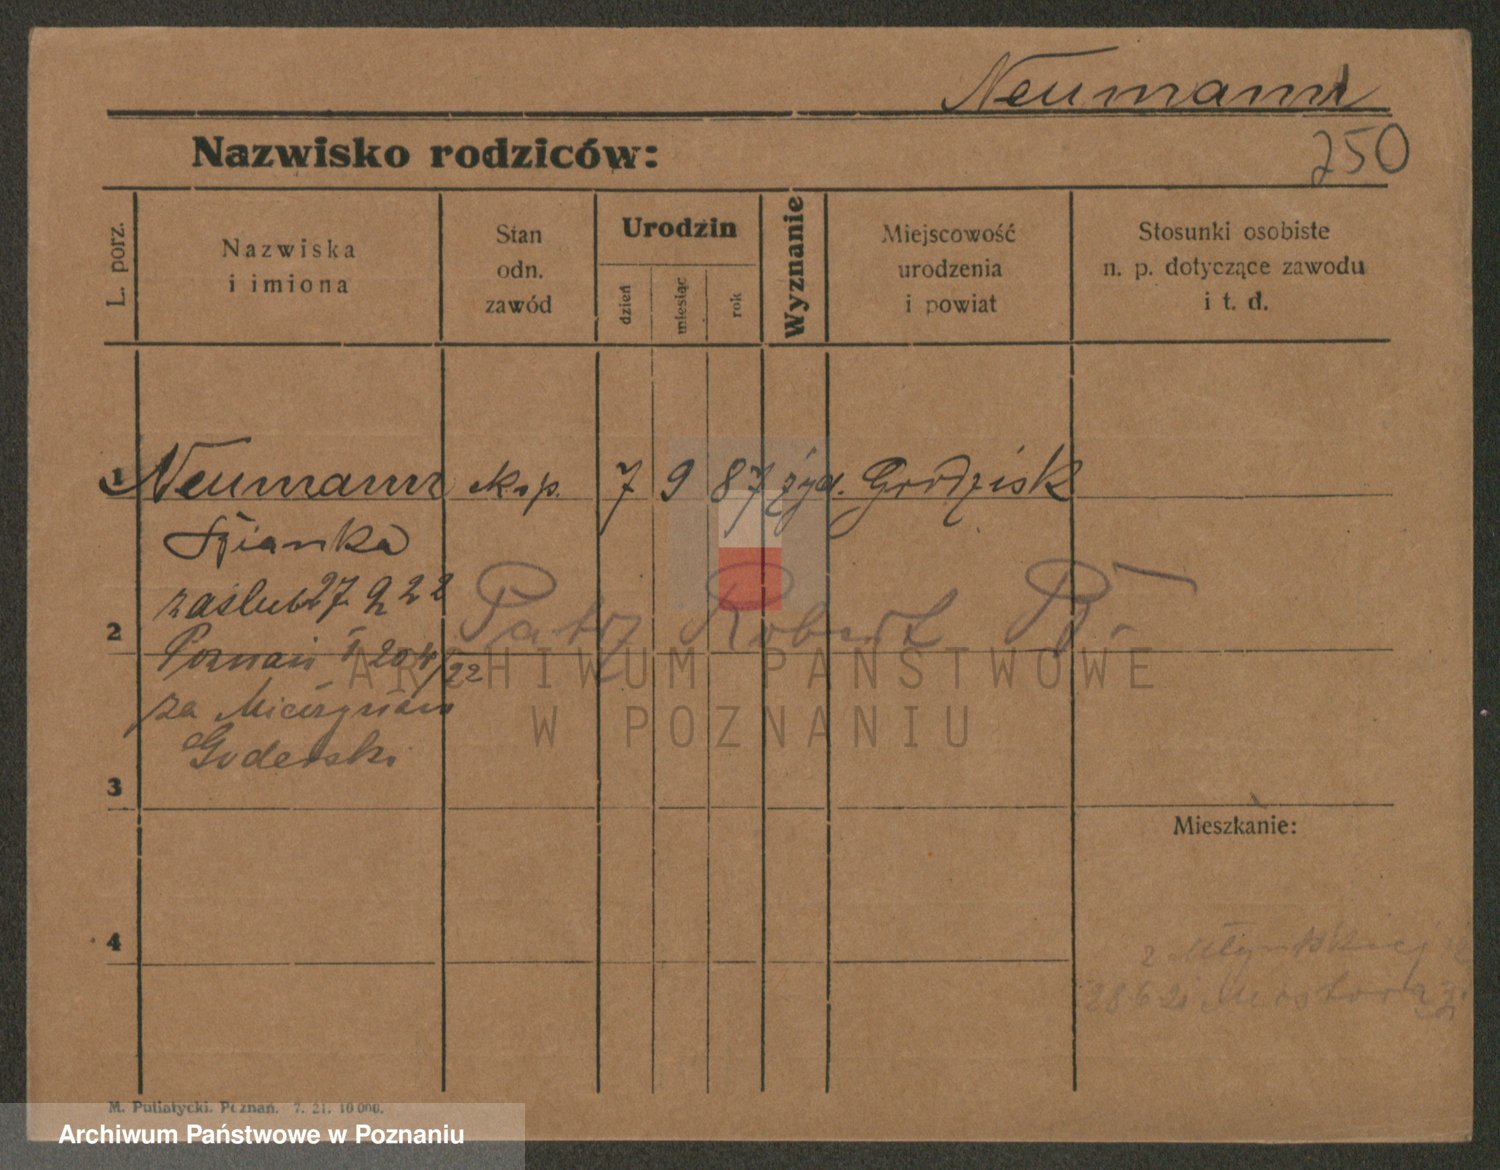 Neumann
250
Nazwisko rodziców:
L. porz.
Nazwiska
i imiona
Stan
odn.
zawód
Urodzin
dzień
miesiąc
rok
Wyznanie
Miejscowość
urodzenia
i powiat
Stosunki osobiste
n. p. dotyczące zawodu
i t. d.
1 Neumann 7 9 87 żyd. Grodzisk
Bianka
zaślub 27. 9 22
Patrz Robert B.
2
Poznań I 204/22
ARCHIWUM PAŃSTWOWE
W POZNANIU
za
Goderski
3
Mieszkanie:
4
z Młyńskiej
M. Putiatycki. Poznań. 7. 21. 10 000.
Archiwum Państwowe w Poznaniu